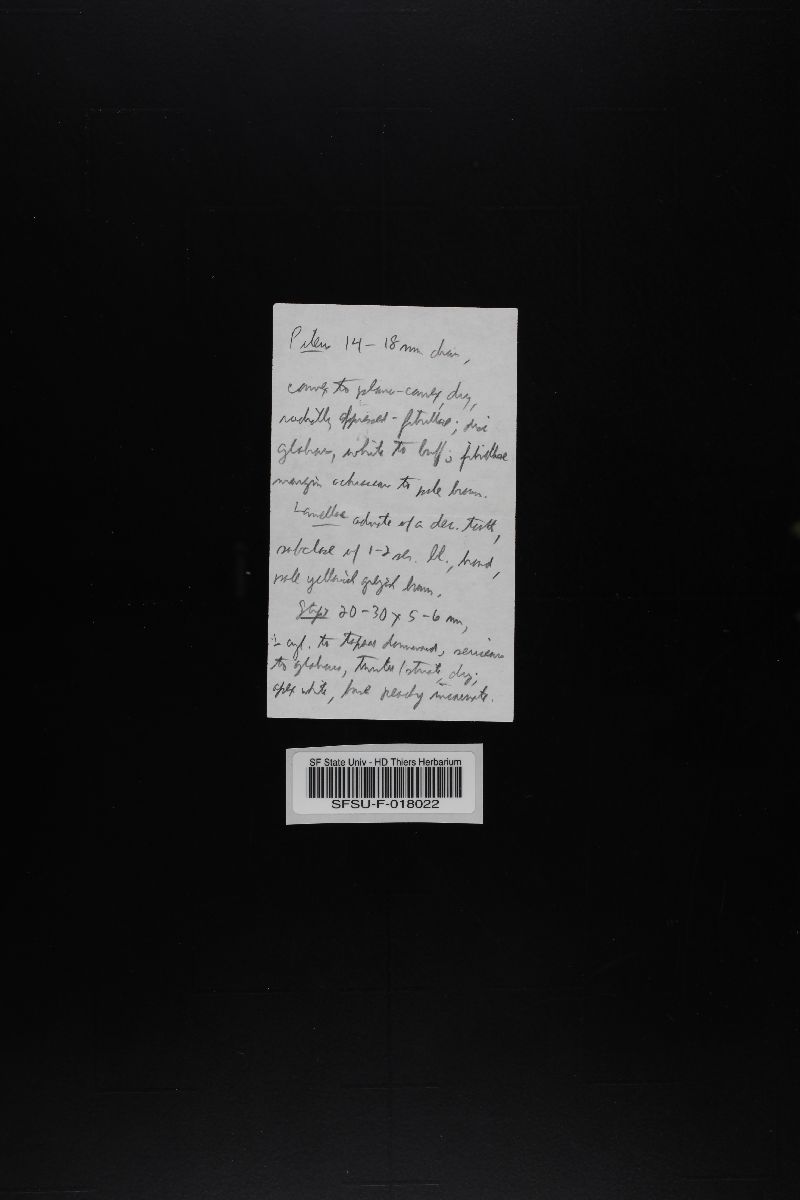 Pileus 14-18 mm diam,
convex to plano-convex, dry,
radially appressed-fibrillose; disc
glabrous, white to buff; fibrillose
margin ochraceous to pale brown.
Lamellae adnate w/ a dec. tooth,
subclose w/ 1-2 ser. ll., broad,
pale yellowish grayish brown.
Stipe 20-30 x 5-6 mm,
± cyl. to tapered downward, sericeous
to glabrous, striate, dry;
apex white, base incarnate.
SF State Univ - HD Thiers Herbarium
SFSU-F-018022